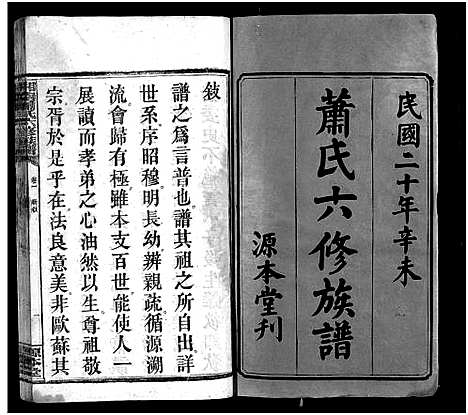 民國二十年辛未
蕭氏六修族譜
源本堂刊
敘
譜之爲言普也譜其祖之所自出詳
世系序昭穆明長幼辨親疏循源溯
流會歸有極雖本支百世能使人一
展讀而孝弟之心油然以生尊祖敬
宗胥於是乎在法良意美非歐蘇其